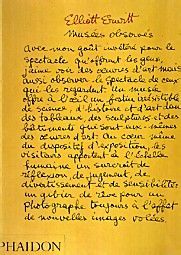 Elliott Erwitt
Musées observés
Avec mon goût invétéré pour le
spectacle qu'offrent les gens,
j'aime voir des œuvres d'art mais
aussi observer le spectacle de ceux
qui les regardent. Un musée
offre à l'œil un festin irrésistible
de science, d'histoire et d'art dans
des tableaux, des sculptures et des
bâtiments qui sont eux-mêmes
des œuvres d'art. Au cœur même
du dispositif d'exposition, les
visiteurs apportent à l'échelle
humaine, un surcroît de
réflexion, de jugement, de
divertissement et de sensibilité:
un gibier de rêve pour un
photographe toujours à l'affût
de nouvelles images volées.
PHAIDON